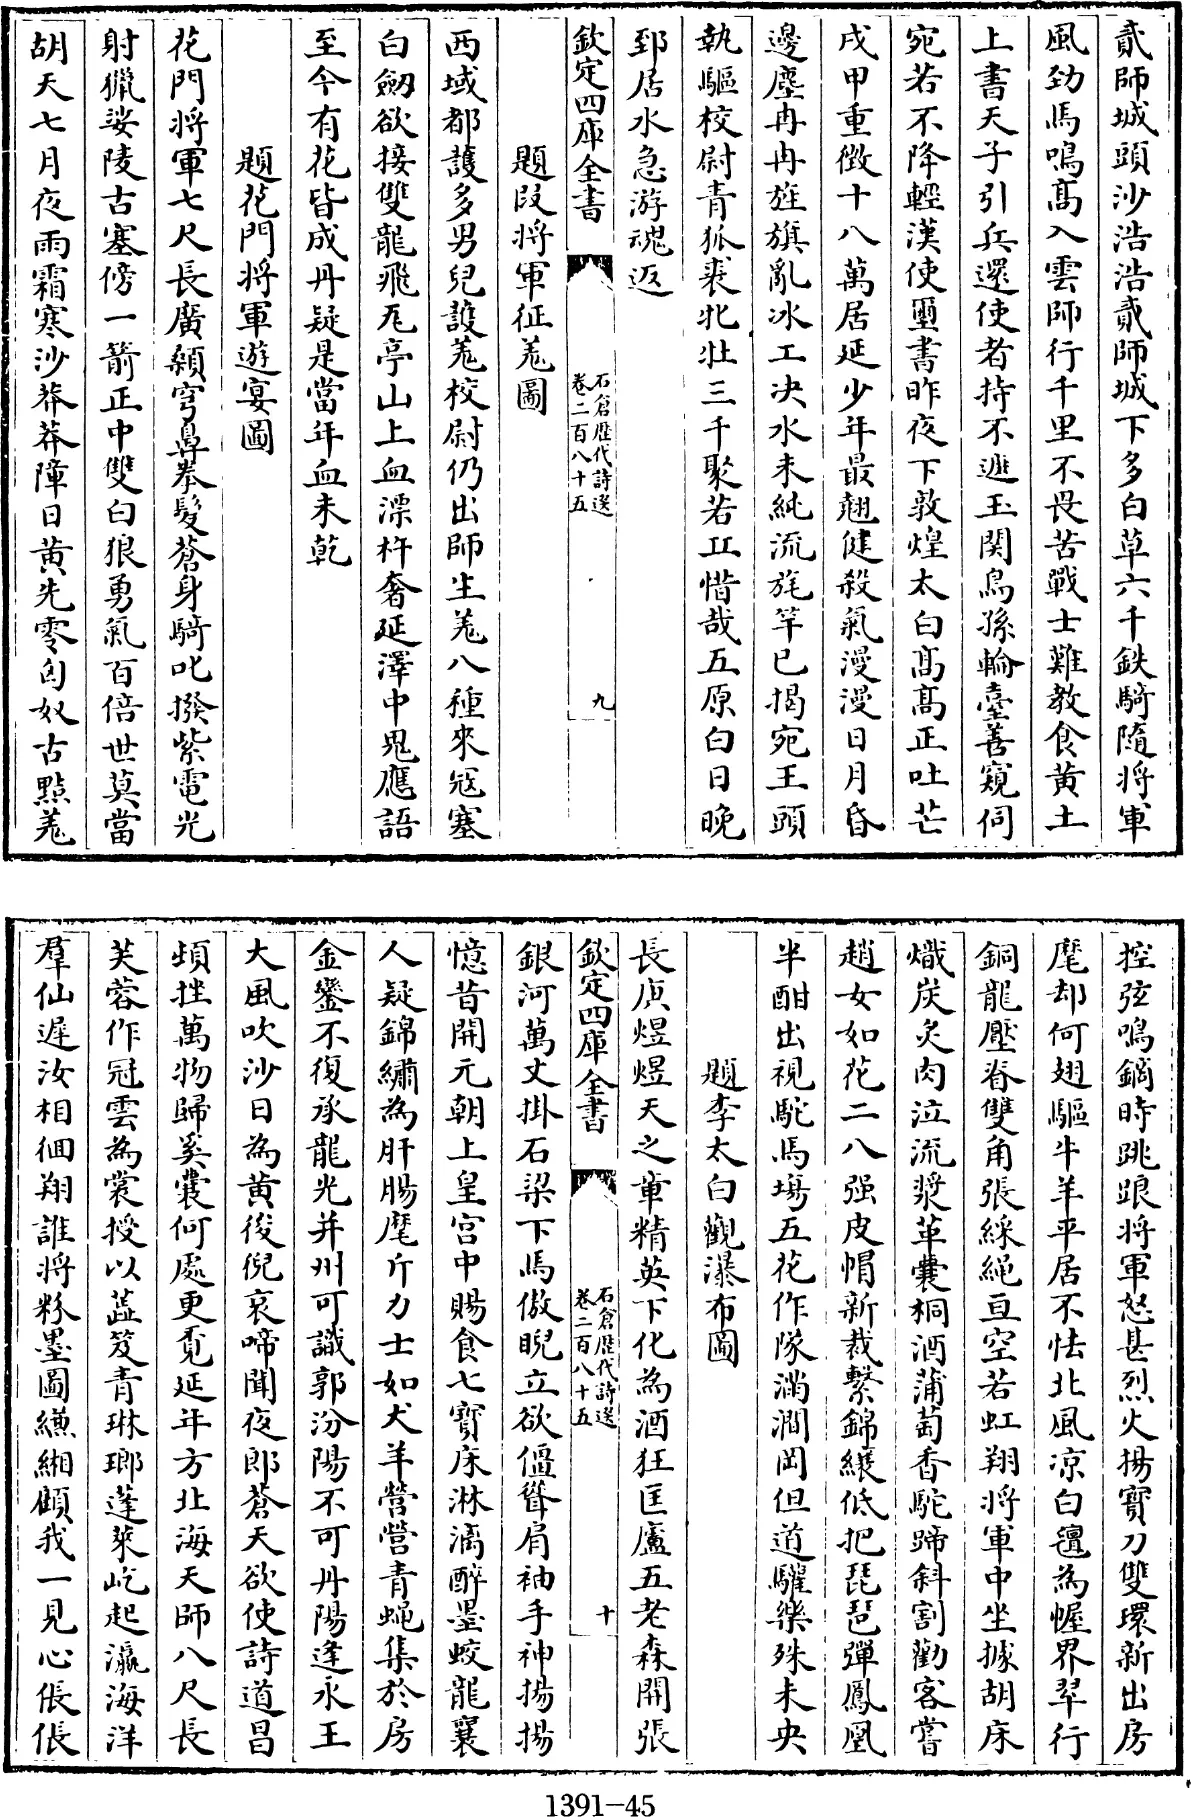 貳師城頭沙浩浩貳師城下多白草六千鉄騎隨将軍
風勁馬鳴髙入雲師行千里不畏苦戰士難教食黄土
上書天子引兵還使者持不遮玉関烏孫輪臺善窺伺
宛若不降輕漢使璽書昨夜下敦煌太白髙髙正吐芒
戌甲重徵十八萬居延少年最翹健殺氣漫漫日月昏
邊塵冉冉旌旗亂冰工决水未絶流旄竿已掲宛王頭
執驅校尉青狐裘牝壯三千聚若丘惜哉五原白日晚
郅居水急游魂返
欽定四庫全書
石倉歴代詩選
卷二百八十五
九
題段将軍征羗圖
西域都䕶多男兒䕶羗校尉仍出師生羗八種來宼塞
白劒欲接雙龍飛亢亭山上血漂杵奢延澤中鬼應語
至今有花皆成丹疑是當年血未乾
題花門将軍遊宴圖
花門將軍七尺長廣顙穹鼻拳髪蒼身騎叱撥紫電光
射獵娑陵古塞傍一箭正中雙白狼勇氣百倍世莫當
胡天七月夜雨霜寒沙莽莽障日黄先零匈奴古㸃羗
控弦鳴鏑時跳踉将軍怒甚烈火揚寳刀雙環新出房
麾却何翅驅牛羊平居不怯北風凉白氊為幄界翠行
銅龍壓脊雙角張綵繩亘空若虹翔將軍中坐據胡床
熾炭炙肉泣流漿革囊桐酒蒲萄香駝蹄斜割勸客嘗
趙女如花二八强皮帽新裁繫錦纕低把琵琶彈鳳凰
半酣出視駝馬塲五花作隊滿澗岡但道驩樂殊未央
題李太白觀瀑布圖
長庚煜煜天之章精英下化為酒狂匡廬五老森開張
欽定四庫全書
石倉歴代詩選
卷二百八十五
十
銀河萬丈掛石梁下馬傲睨立欲僵聳肩袖手神揚揚
憶昔開元朝上皇宫中賜食七寳床淋漓醉墨蛟龍襄
人疑錦繡為肝腸麾斤力士如犬羊營營青蝿集於房
金鑾不復承龍光并州可識郭汾陽不可丹陽逢永王
大風吹沙日為黄後倪哀啼聞夜郎蒼天欲使詩道昌
頓挫萬物歸奚囊何處更覔延年方北海天師八尺長
芙蓉作冠雲為裳授以蕋笈青琳瑯蓬萊屹起瀛海洋
羣仙遲汝相徊翔誰將粉墨圖縑緗顧我一見心倀倀
1391-45